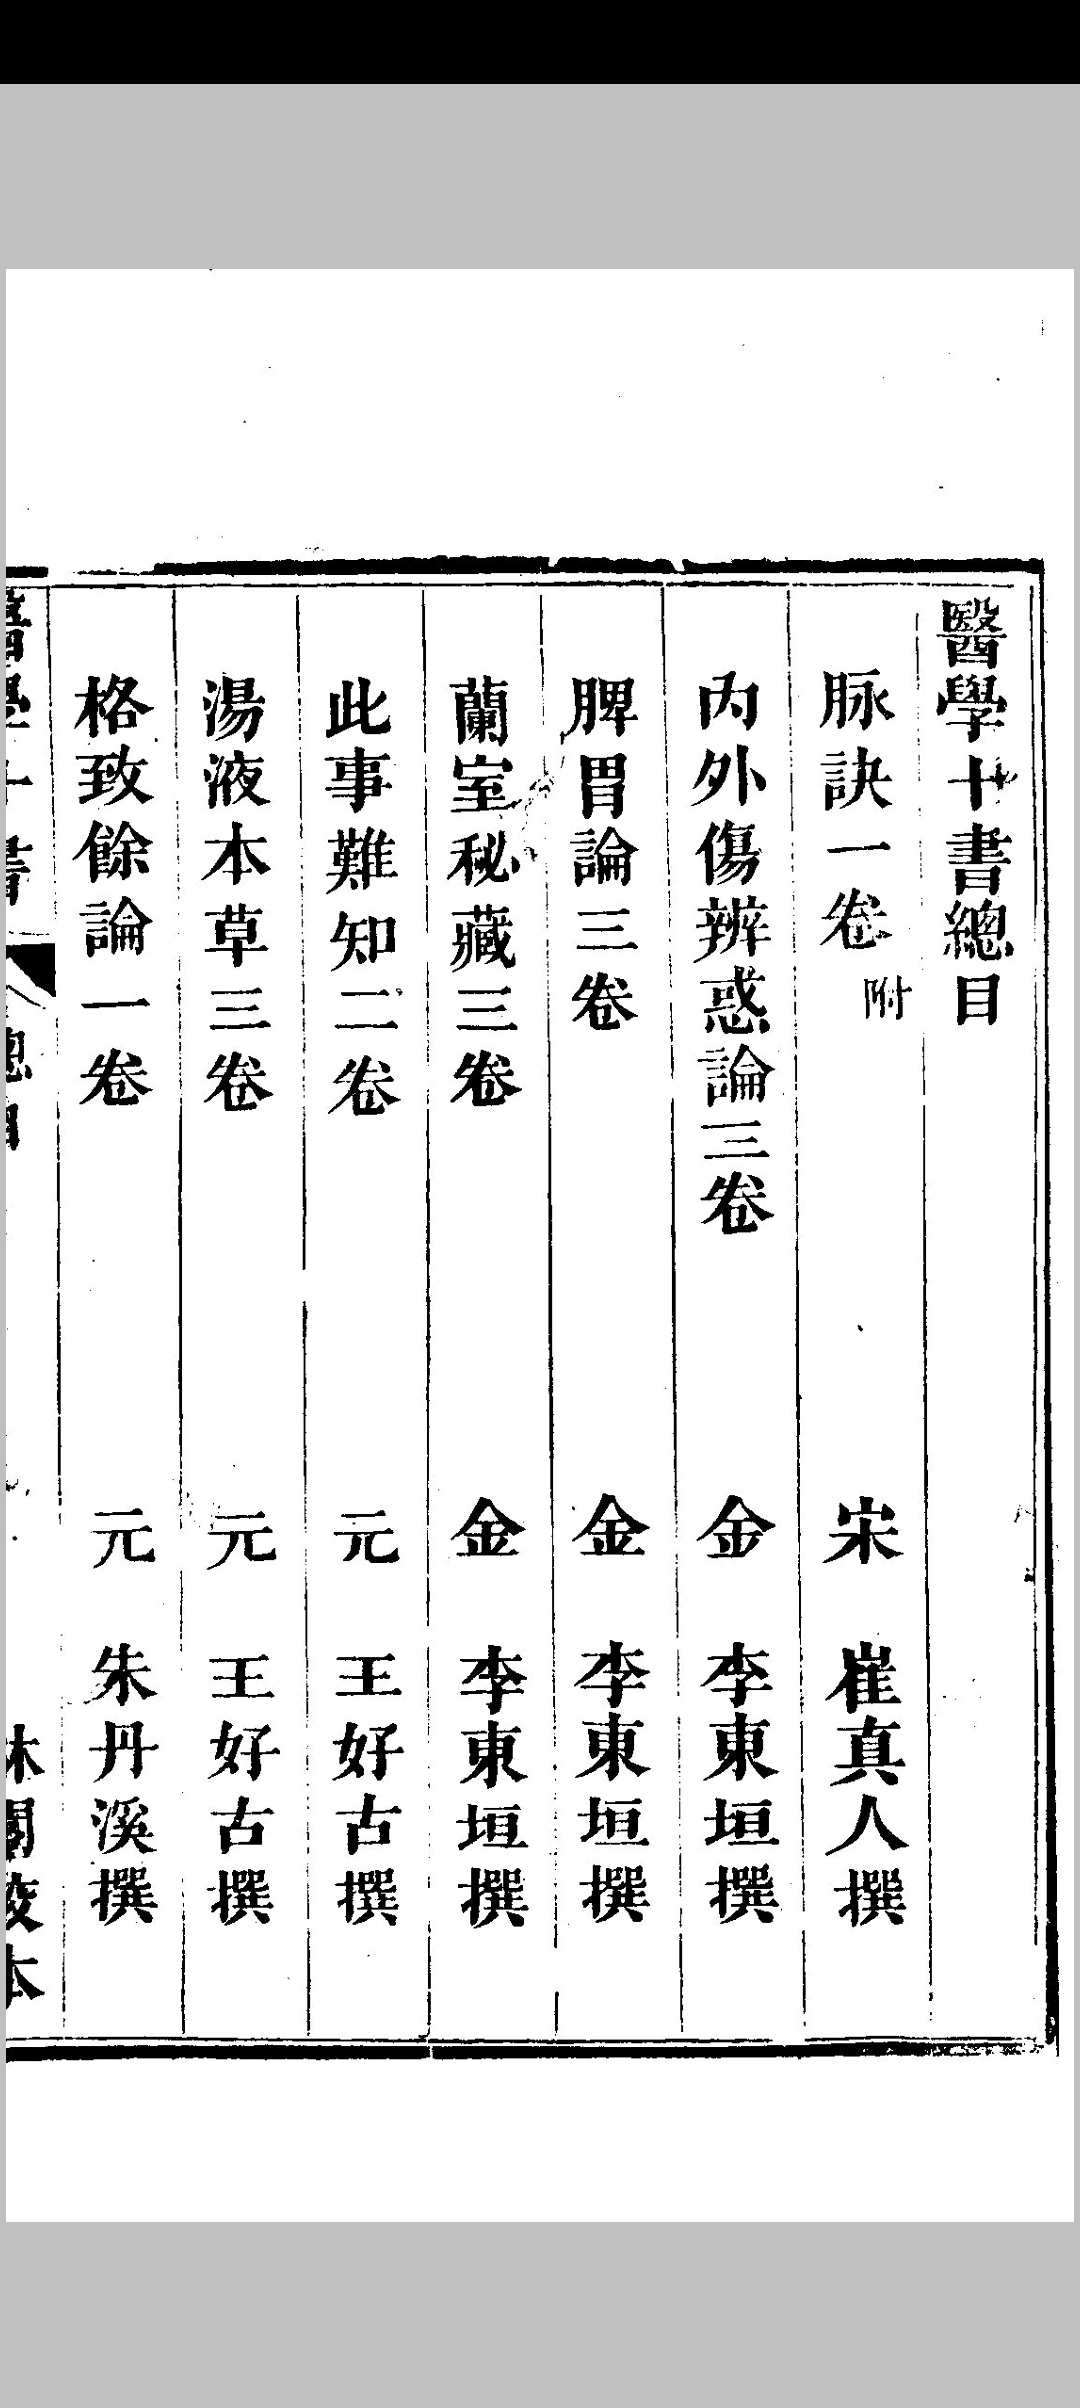 醫學十書總目
脉訣一卷 附 宋 崔真人撰
内外傷辨惑論三卷 金 李東垣撰
脾胃論三卷 金 李東垣撰
蘭室秘藏三卷 金 李東垣撰
此事難知二卷 元 王好古撰
湯液本草三卷 元 王好古撰
格致餘論一卷 元 朱丹溪撰
醫學十書 總目